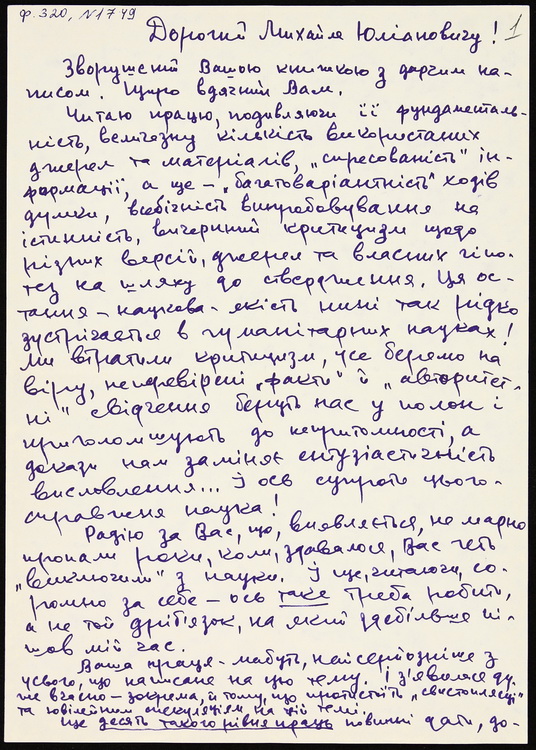 ф. 320, №1749
1
Дорогий Михайле Юліановичу!
Зворушений Вашою книжкою з дарчим на-
писом. Щиро вдячний Вам.
Читаю працю, подивляючи її фундаменталь-
ність, величезну кількість використаних
джерел та матеріалів, „спресованість" ін-
формації, а ще – „багатоваріантність" ходів
думки, всебічність випробовування на
істинність, вичерпний критицизм щодо
різних версій, джерел та власних гіпо-
тез на шляху до ствердження. Ця ос-
тання – наукова – якість нині так рідко
зустрічається в гуманітарних науках!
Ми втратили критицизм, усе беремо на
віру, неперевірені „факти" й „авторитет-
ні" свідчення беруть нас у полон і
приголомшують до непритомності, а
докази нам заміняє ентузіастичність
висловлення... І ось супроти цього –
справжня наука!
Радію за Вас, що, виявляється, не марно
пропали роки, коли, здавалося, Вас геть
„виключили" з науки. І ще, читаючи, со-
ромно за себе – ось таке треба робити,
а не той дріб'язок, на який здебільше пі-
шов мій час.
Ваша праця – мабуть, найсерйозніше з
усього, що написане на цю тему. І з'явилася ду-
же вчасно – зокрема, й тому, що протистоїть „свистопляці"
та ювілейним спекуляціям на цій темі.
Ще десять такого рівня праць повинні дати, до-